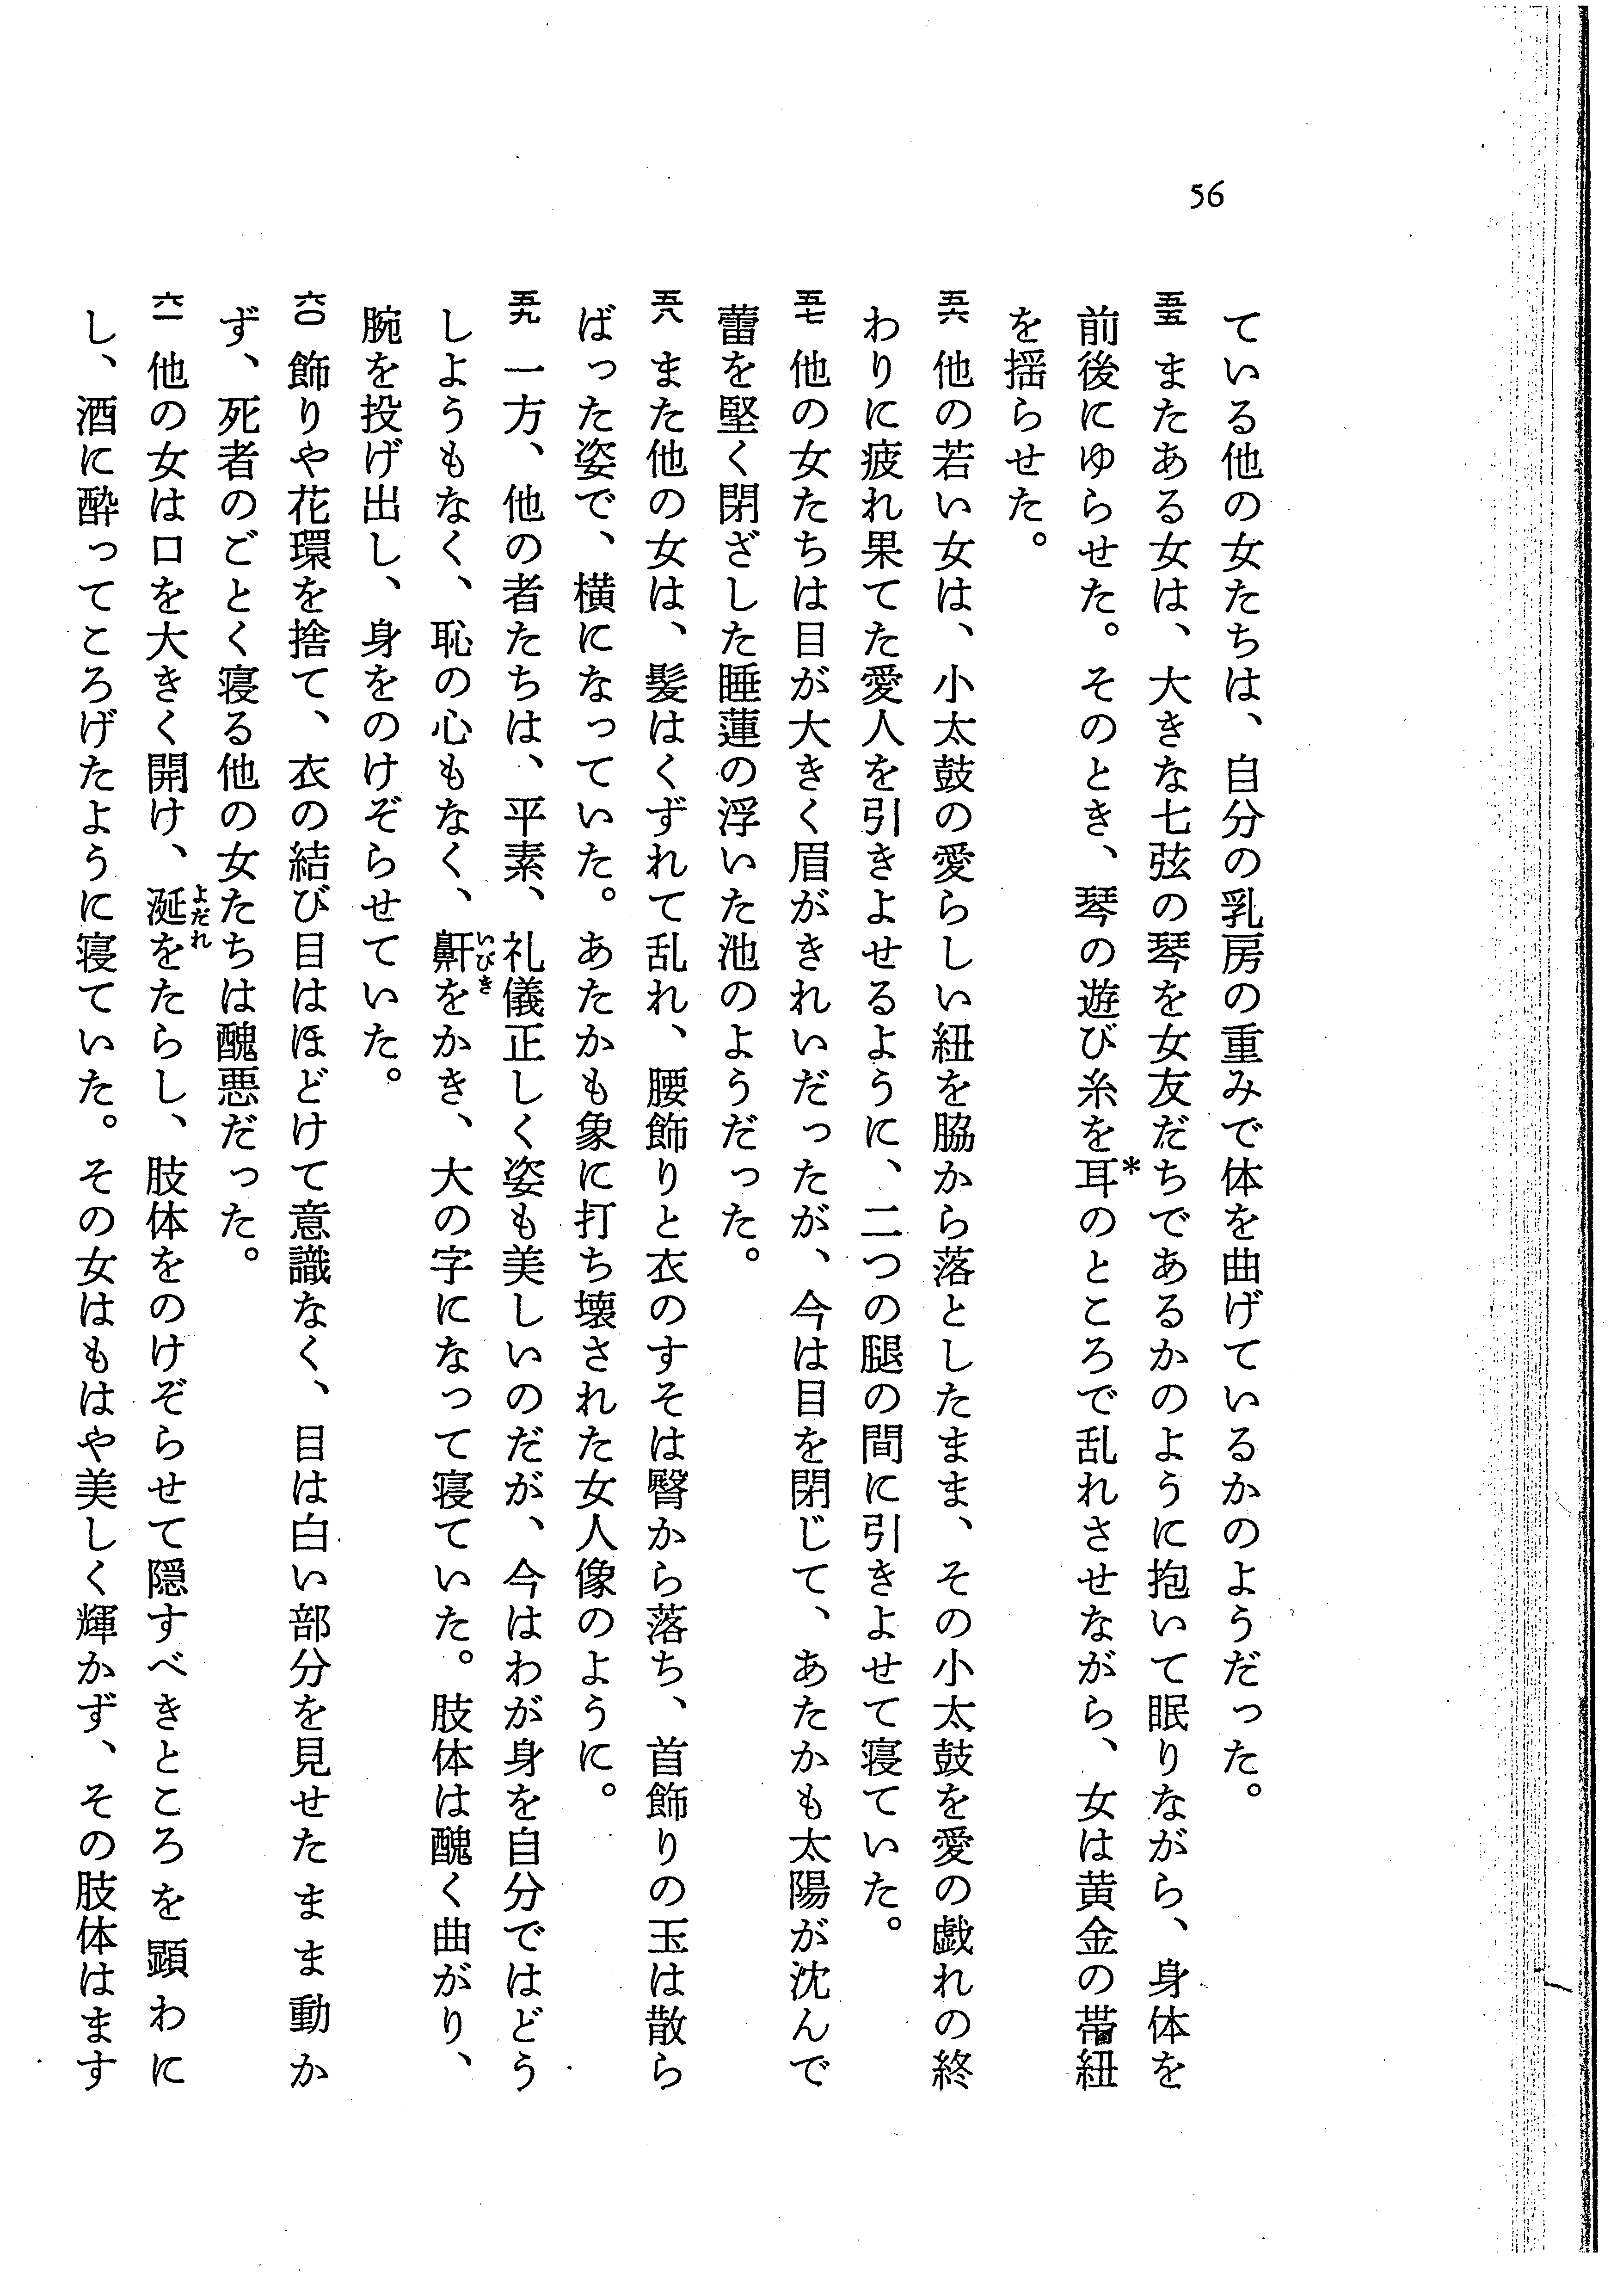 56
ている他の女たちは、自分の乳房の重みで体を曲げているかのようだった。
五五 またある女は、大きな七弦の琴を女友だちであるかのように抱いて眠りながら、身体を
前後にゆらせた。そのとき、琴の遊び糸を耳*のところで乱れさせながら、女は黄金の帯紐
を揺らせた。
五六 他の若い女は、小太鼓の愛らしい紐を脇から落としたまま、その小太鼓を愛の戯れの終
わりに疲れ果てた愛人を引きよせるように、二つの腿の間に引きよせて寝ていた。
五七 他の女たちは目が大きく眉がきれいだったが、今は目を閉じて、あたかも太陽が沈んで
蕾を堅く閉ざした睡蓮の浮いた池のようだった。
五八 また他の女は、髪はくずれて乱れ、腰飾りと衣のすそは臀から落ち、首飾りの玉は散ら
ばった姿で、横になっていた。あたかも象に打ち壊された女人像のように。
五九 一方、他の者たちは、平素、礼儀正しく姿も美しいのだが、今はわが身を自分ではどう
しようもなく、恥の心もなく、鼾いびきをかき、大の字になって寝ていた。肢体は醜く曲がり、
腕を投げ出し、身をのけぞらせていた。
六〇 飾りや花環を捨て、衣の結び目はほどけて意識なく、目は白い部分を見せたまま動か
ず、死者のごとく寝る他の女たちは醜悪だった。
六一 他の女は口を大きく開け、涎よだれをたらし、肢体をのけぞらせて隠すべきところを顕わに
し、酒に酔ってころげたように寝ていた。その女はもはや美しく輝かず、その肢体はます